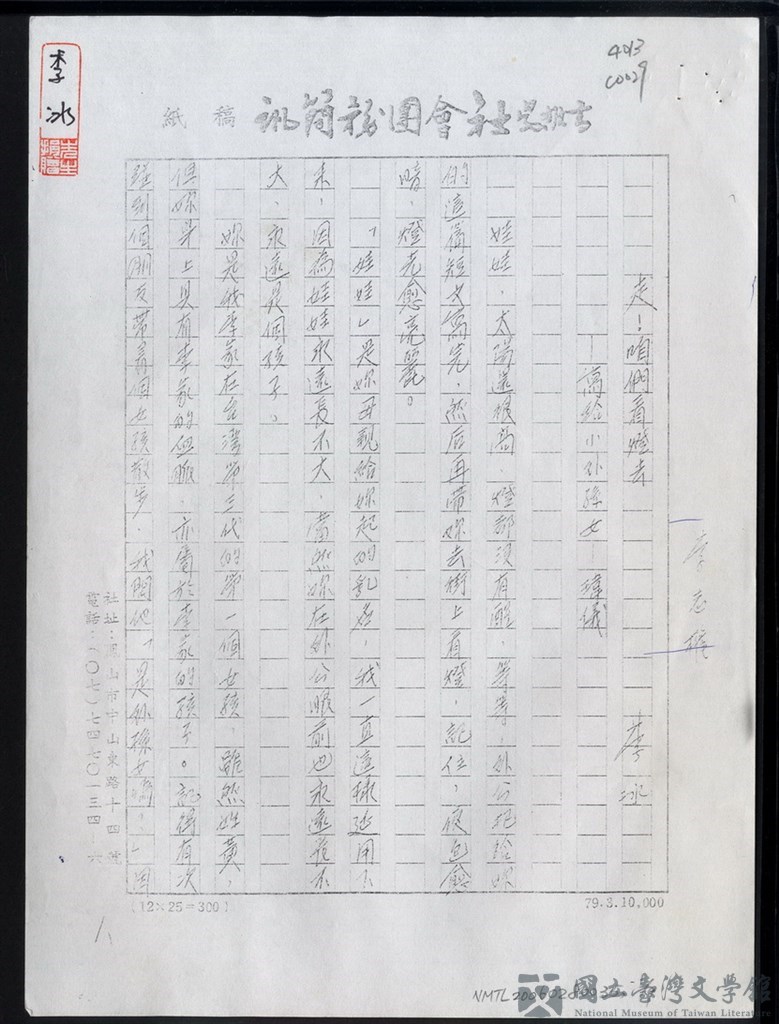 李冰
先生
捐贈
4013
C0029
稿紙
走!咱們看燈去
——寫給小外孫女 瑋儀
李冰
娃娃,太陽還很高,燈都沒有醒,等等,外公把給妳
的這篇短文寫完,然后再帶妳去街上看燈,記住,夜色愈
暗,燈光愈亮麗。
「娃娃」是妳母親給妳起的乳名,我一直這樣延用下
來,因為娃娃永遠長不大,當然妳在外公眼前也永遠長不
大,永遠是個孩子。
妳是我李家在台灣第三代的第一個女孩,雖然姓黃,
但妳身上具有李家的血脈,亦屬於李家的孩子。記得有次
碰到個朋友帶着個女孩散步,我問他「是外孫女嗎?」因
社址:鳳山市中山東路十四號
電話:(〇七)七四七〇一三四─六
(12×25=300)
79.3.10,000
1
國立臺灣文學館
National Museum of Taiwan Literature